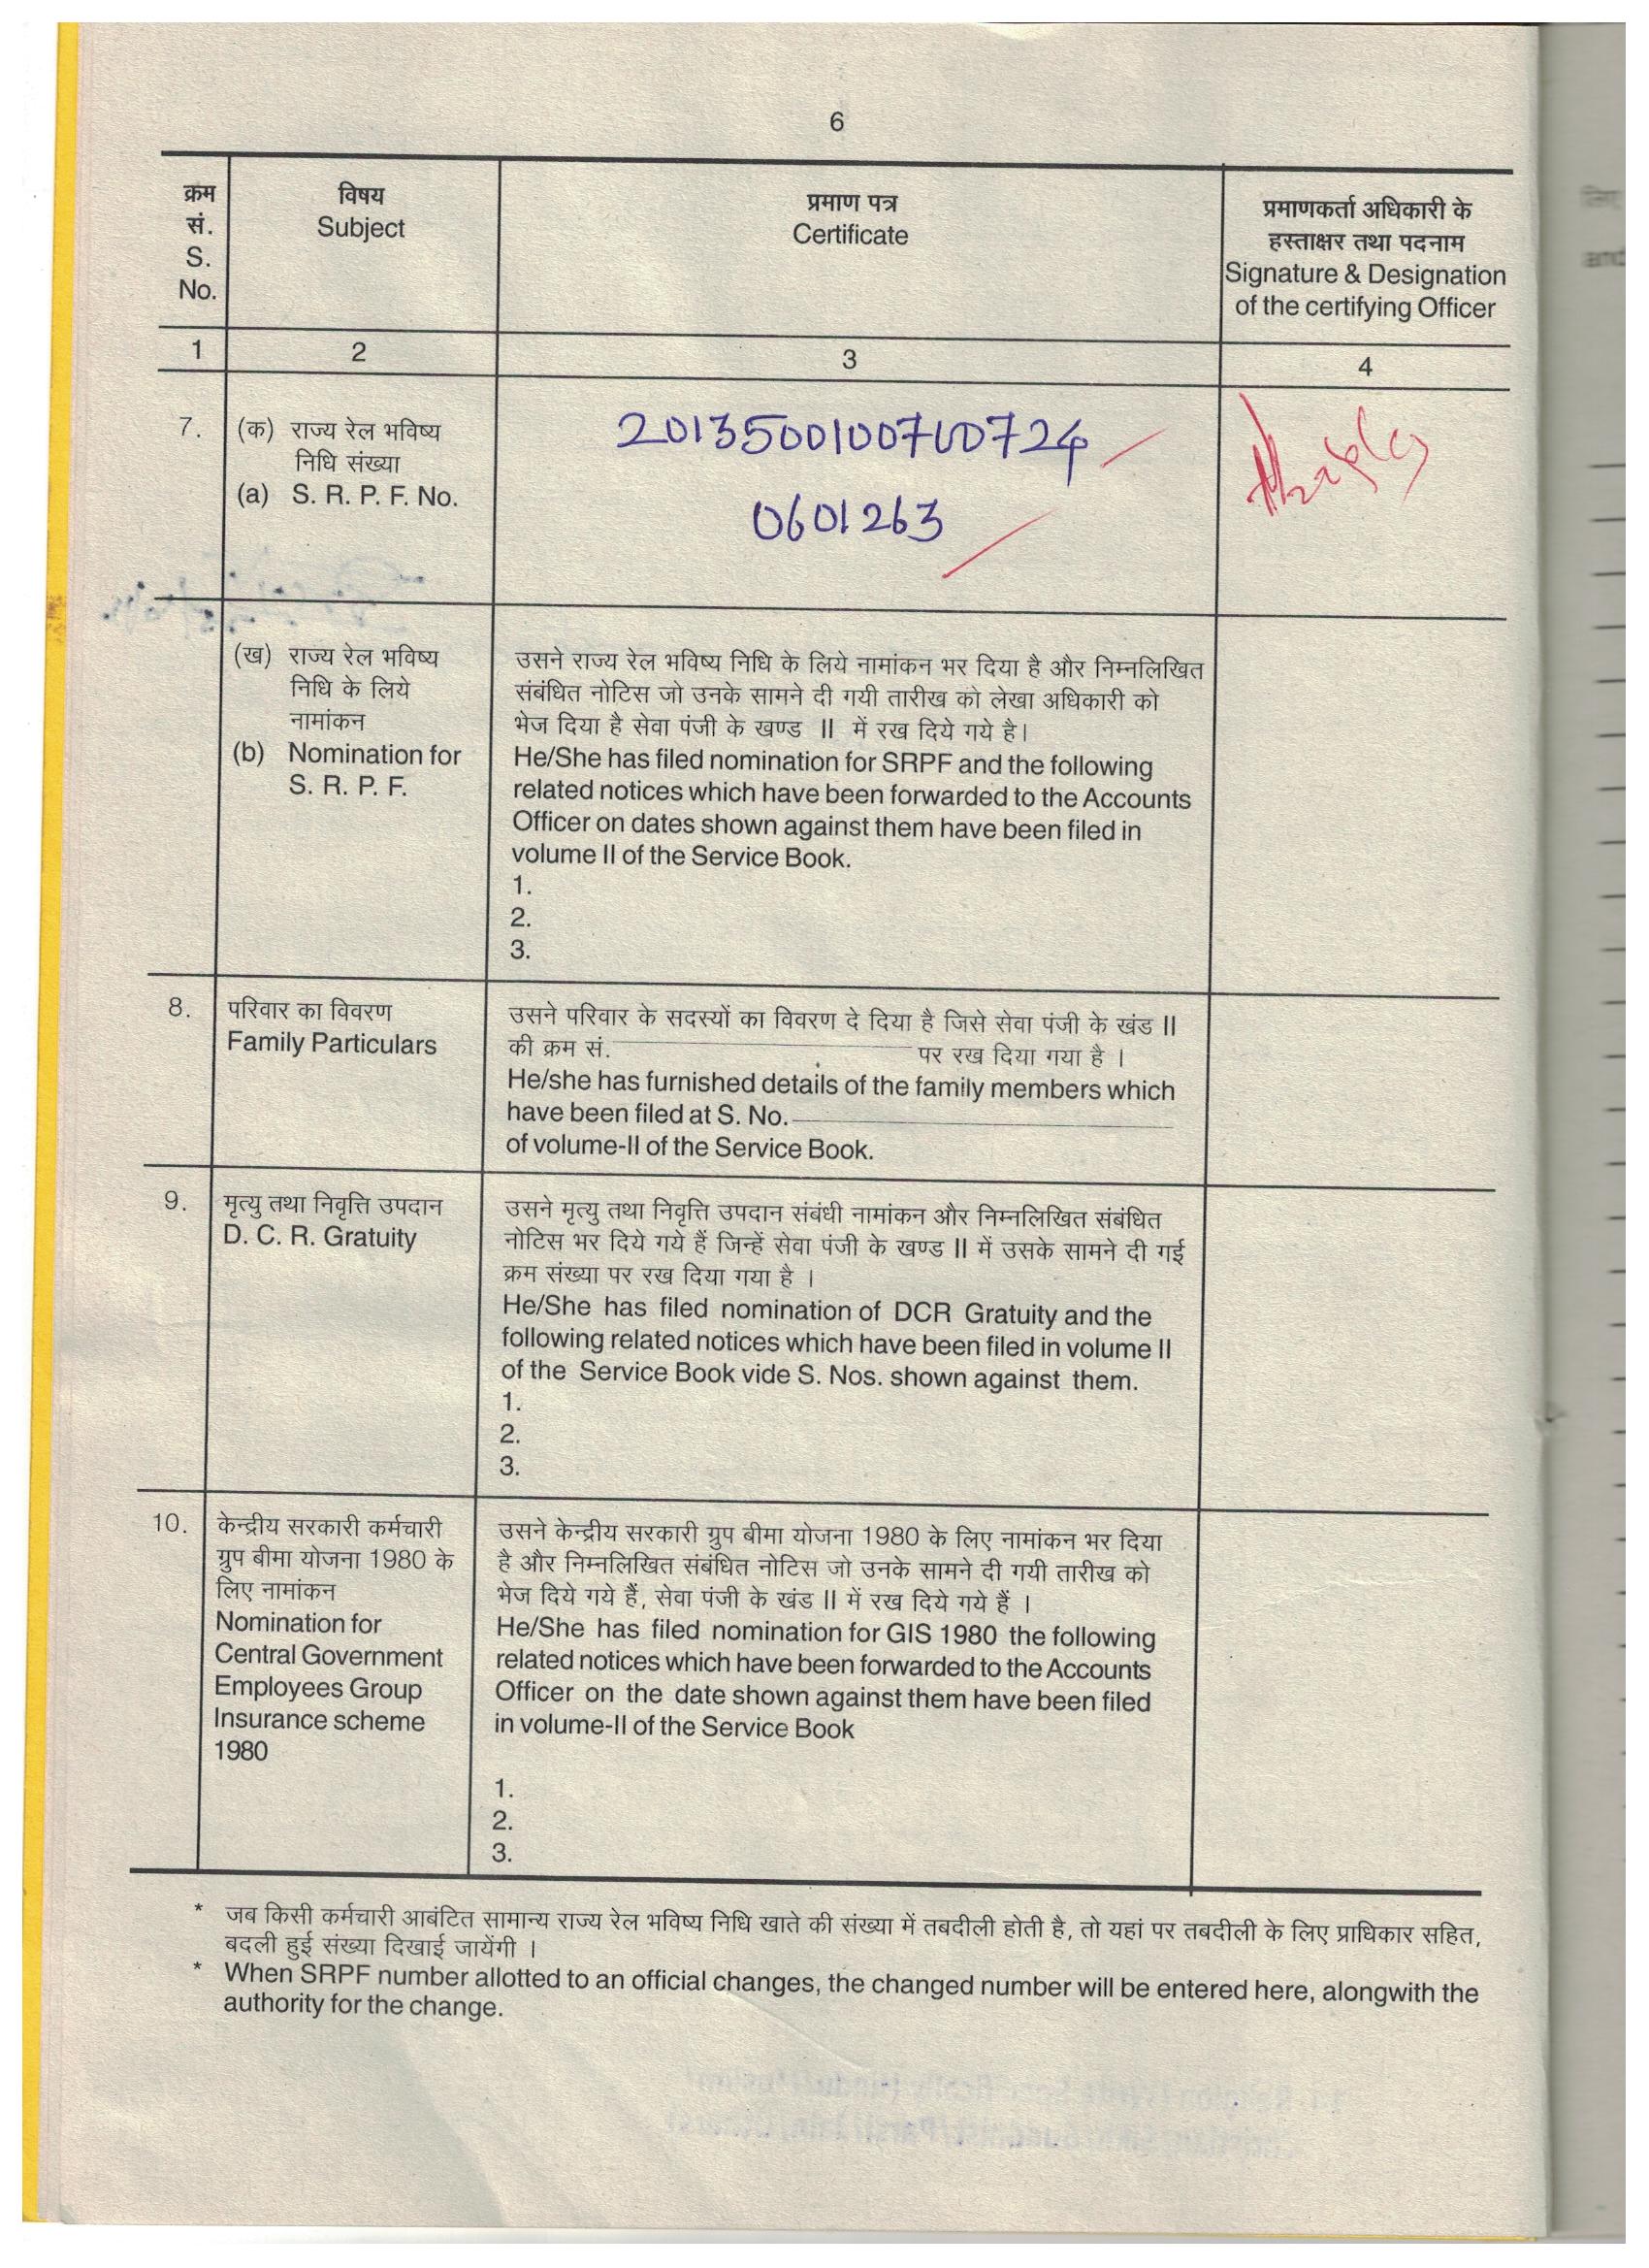 6
क्रम
सं.
S.
No.
विषय
Subject
प्रमाण पत्र
Certificate
प्रमाणकर्ता अधिकारी के
हस्ताक्षर तथा पदनाम
Signature & Designation
of the certifying Officer
1 2 3 4
7. (क) राज्य रेल भविष्य
निधि संख्या
(a) S. R. P. F. No.
0601263
(ख) राज्य रेल भविष्य
निधि के लिये
नामांकन
(b) Nomination for
S. R. P. F.
उसने राज्य रेल भविष्य निधि के लिये नामांकन भर दिया है और निम्नलिखित
संबंधित नोटिस जो उनके सामने दी गयी तारीख को लेखा अधिकारी को
भेज दिया है सेवा पंजी के खण्ड II में रख दिये गये है।
He/She has filed nomination for SRPF and the following
related notices which have been forwarded to the Accounts
Officer on dates shown against them have been filed in
volume II of the Service Book.
1.
2.
3.
8. परिवार का विवरण
Family Particulars
उसने परिवार के सदस्यों का विवरण दे दिया है जिसे सेवा पंजी के खंड II
की क्रम सं. पर रख दिया गया है ।
He/she has furnished details of the family members which
have been filed at S. No.
of volume-II of the Service Book.
9. मृत्यु तथा निवृत्ति उपदान
D. C. R. Gratuity
उसने मृत्यु तथा निवृत्ति उपदान संबंधी नामांकन और निम्नलिखित संबंधित
नोटिस भर दिये गये हैं जिन्हें सेवा पंजी के खण्ड II में उसके सामने दी गई
क्रम संख्या पर रख दिया गया है ।
He/She has filed nomination of DCR Gratuity and the
following related notices which have been filed in volume II
of the Service Book vide S. Nos. shown against them.
1.
2.
3.
10. केन्द्रीय सरकारी कर्मचारी
ग्रुप बीमा योजना 1980 के
लिए नामांकन
Nomination for
Central Government
Employees Group
Insurance scheme
1980
उसने केन्द्रीय सरकारी ग्रुप बीमा योजना 1980 के लिए नामांकन भर दिया
है और निम्नलिखित संबंधित नोटिस जो उनके सामने दी गयी तारीख को
भेज दिये गये हैं, सेवा पंजी के खंड II में रख दिये गये हैं ।
He/She has filed nomination for GIS 1980 the following
related notices which have been forwarded to the Accounts
Officer on the date shown against them have been filed
in volume-II of the Service Book
1.
2.
3.
* जब किसी कर्मचारी आबंटित सामान्य राज्य रेल भविष्य निधि खाते की संख्या में तबदीली होती है, तो यहां पर तबदीली के लिए प्राधिकार सहित,
बदली हुई संख्या दिखाई जायेंगी ।
* When SRPF number allotted to an official changes, the changed number will be entered here, alongwith the
authority for the change.